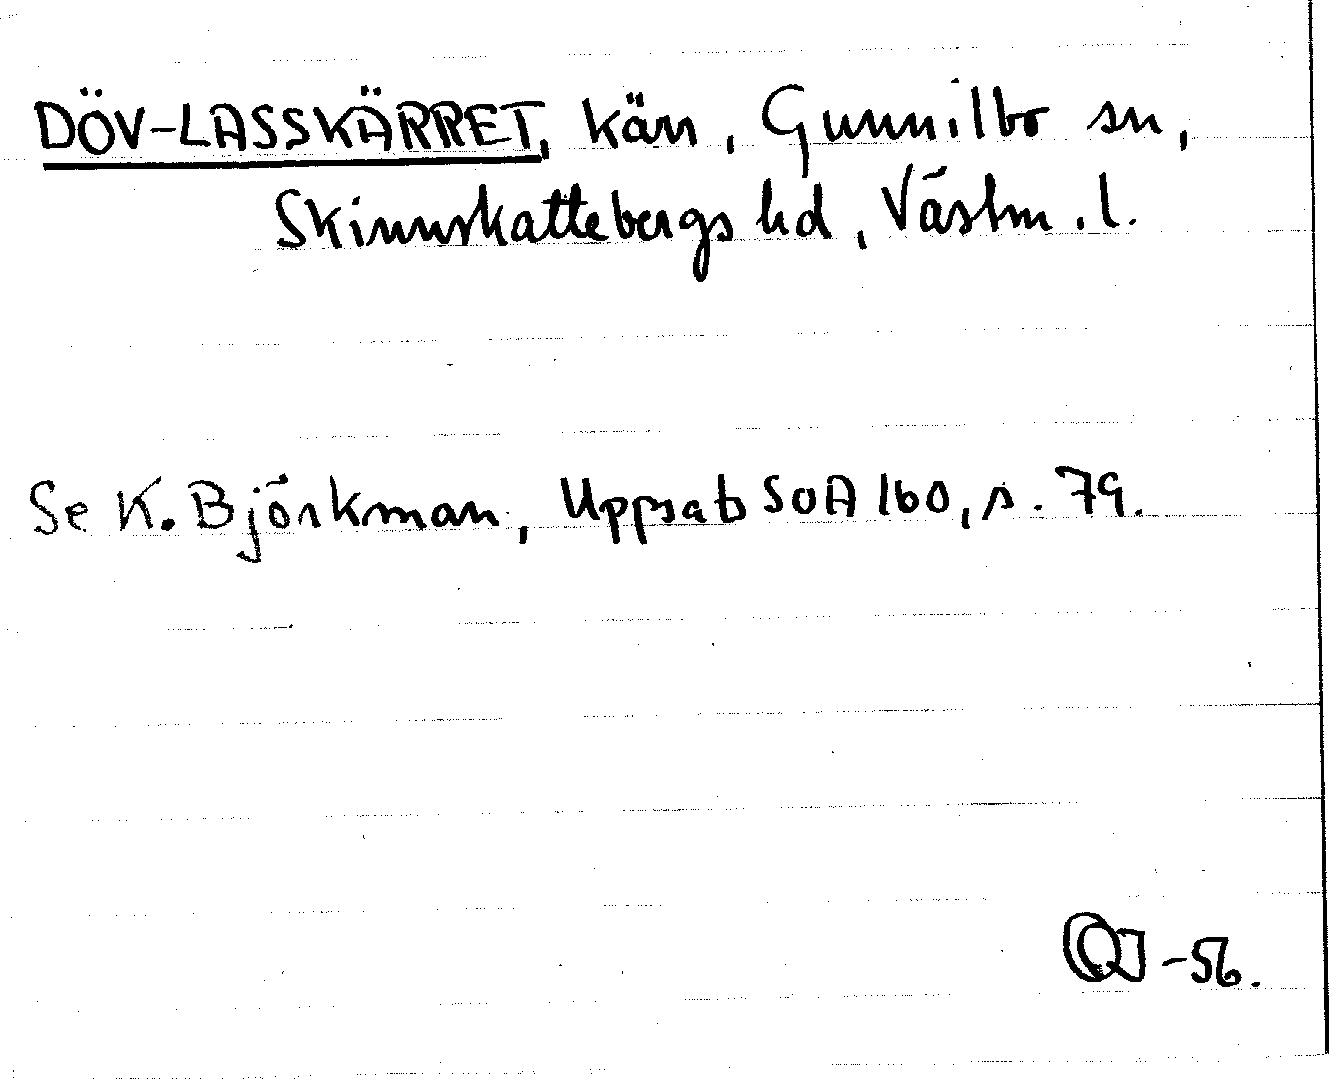 DÖV-LASSKÄRRET, kärr, Gunnilbo sn,
Skinnskattebergs hd, Västm. l.
Se K. Björkman, Uppsats SOA 160, s. 79.
-56.